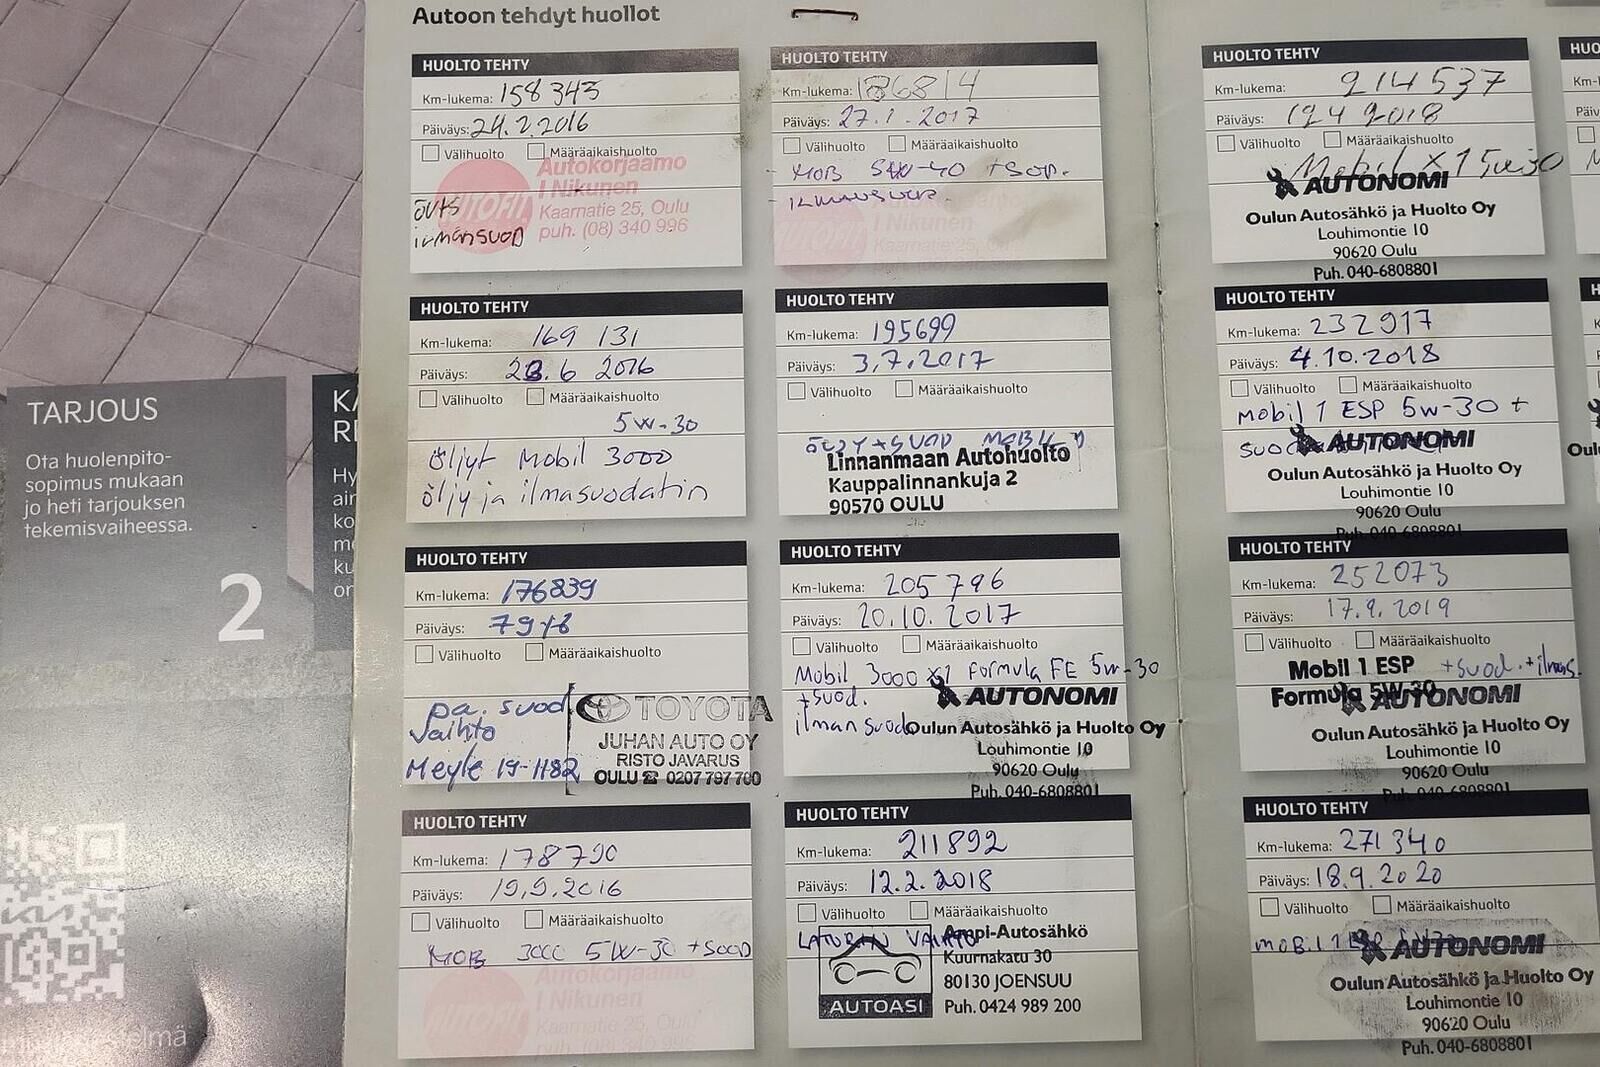 Autoon tehdyt huollot
TARJOUS
Ota huolenpito-
sopimus mukaan
jo heti tarjouksen
tekemisvaiheessa.
2
HUOLTO TEHTY
Km-lukema: 158 343
Päiväys: 24.2.2016
Välihuolto Määräaikaishuolto
Autokorjaamo
I Nikunen
Kaarnatie 25, Oulu
puh. (08) 340 996
AUTOFIT
ilmansuod
HUOLTO TEHTY
Km-lukema: 169 131
Päiväys: 23.6 2016
Välihuolto Määräaikaishuolto
5w-30
Öljyt Mobil 3000
öljy ja ilmasuodatin
HUOLTO TEHTY
Km-lukema: 176839
Päiväys:
Välihuolto Määräaikaishuolto
pa. suod
vaihto
Meyle 19-1182
TOYOTA
JUHAN AUTO OY
RISTO JAVARUS
OULU ☎ 0207 797 700
HUOLTO TEHTY
Km-lukema: 178790
Päiväys: 19.9.2016
Välihuolto Määräaikaishuolto
MOB 3000 5W-30 + SUOD
Autokorjaamo
I Nikunen
Kaarnatie 25, Oulu
puh. (08) 340 996
HUOLTO TEHTY
Km-lukema: 186814
Päiväys: 27.1.2017
Välihuolto Määräaikaishuolto
MOB 5W-40 + SUOD.
I Nikunen
Kaarnatie 25, Oulu
HUOLTO TEHTY
Km-lukema: 195699
Päiväys: 3.7.2017
Välihuolto Määräaikaishuolto
ÖLJY + SUOD MOBIL 1
Linnanmaan Autohuolto
Kauppalinnankuja 2
90570 OULU
HUOLTO TEHTY
Km-lukema: 205 796
Päiväys: 20.10.2017
Välihuolto Määräaikaishuolto
Mobil 3000 x1 Formula FE 5w-30
+ suod.
ilman suod.
AUTONOMI
Oulun Autosähkö ja Huolto Oy
Louhimontie 10
90620 Oulu
Puh. 040-6808801
HUOLTO TEHTY
Km-lukema: 211892
Päiväys: 12.2.2018
Välihuolto Määräaikaishuolto
LATURIN VAIHTO
Amppi-Autosähkö
Kuurnakatu 30
80130 JOENSUU
Puh. 0424 989 200
AUTOASI
HUOLTO TEHTY
Km-lukema: 214537
Päiväys: 12 4 2018
Välihuolto Määräaikaishuolto
Mobil x1 5w30
AUTONOMI
Oulun Autosähkö ja Huolto Oy
Louhimontie 10
90620 Oulu
Puh. 040-6808801
HUOLTO TEHTY
Km-lukema: 232917
Päiväys: 4.10.2018
Välihuolto Määräaikaishuolto
Mobil 1 ESP 5w-30 +
suod
AUTONOMI
Oulun Autosähkö ja Huolto Oy
Louhimontie 10
90620 Oulu
Puh. 040-6808801
HUOLTO TEHTY
Km-lukema: 252073
Päiväys: 17.9.2019
Välihuolto Määräaikaishuolto
Mobil 1 ESP + suod. + ilmas.
Formula 5W-30
AUTONOMI
Oulun Autosähkö ja Huolto Oy
Louhimontie 10
90620 Oulu
Puh. 040-6808801
HUOLTO TEHTY
Km-lukema: 271340
Päiväys: 18.9.2020
Välihuolto Määräaikaishuolto
mobil 1
AUTONOMI
Oulun Autosähkö ja Huolto Oy
Louhimontie 10
90620 Oulu
Puh. 040-6808801